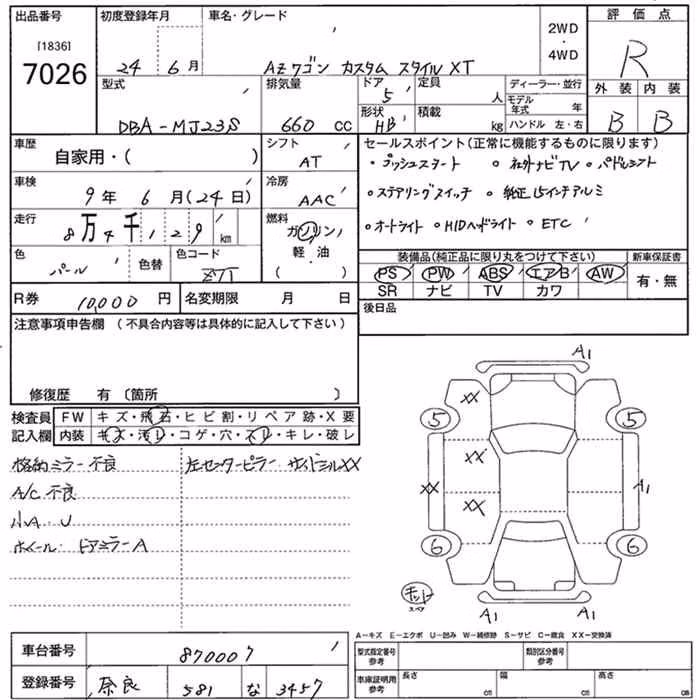 出品番号
[1836]
7026
初度登録年月
24 6月
車名・グレード
AZワゴン カスタム スタイル XT
2WD
・
4WD
評価点
R
型式
DBA-MJ23S
排気量
660 cc
ドア
5
定員
人
形状
HB
積載
kg
ディーラー・並行
モデル年式 年
ハンドル 左・右
外装 内装
B B
車歴
自家用・( )
シフト
AT
セールスポイント(正常に機能するものに限ります)
・プッシュスタート ・社外ナビTV ・パドルシフト
・ステアリングスイッチ ・純正15インチアルミ
・オートライト ・HIDヘッドライト ・ETC
車検
9年 6月(24日)
冷房
AAC
走行
8万4千129km
燃料
ガソリン
軽・油
( )
色
パール
色替
色コード
ZJ1
装備品(純正品に限り丸をつけて下さい)
PS PW ABS エアB AW
SR ナビ TV カワ
新車保証書
有・無
R券 10,000円
名変期限 月 日
後日品
注意事項申告欄 (不具合内容等は具体的に記入して下さい)
修復歴 有〔箇所 〕
検査員記入欄
FW キズ・飛石・ヒビ割・リペア跡・X要
内装 キズ・汚レ・コゲ・穴・スレ・キレ・破レ
格納ミラー不良
左センターピラー サイドシルXX
A/C不良
小A・U
ホイール・ドアミラーA
A1
XX
5 5
XX
XX A1
XX
6 6
キット
スペア
A1 A1
A-キズ E-エクボ U-凹み W-補修跡 S-サビ C-腐食 XX-交換済
車台番号
870007
登録番号
奈良 581 な 3457
型式指定番号
参考
類別区分番号
参考
車庫証明用
参考
長さ cm
幅 cm
高さ cm